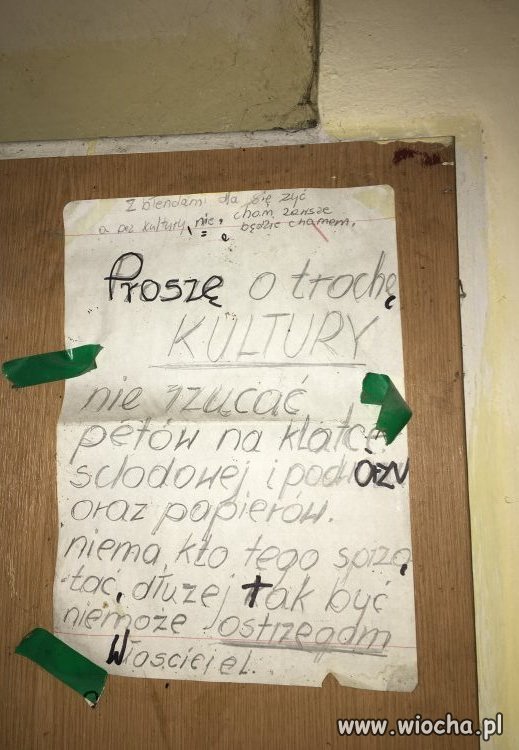 z blendami dla się żyć
a bez kultury nie, cham zawsze
będzie chamem.
Proszę o trochę
KULTURY
nie rzucać
petów na klatcę
sclodowej i podwÓRZU
oraz papierów.
niema kto tego sprzą
tać, dłużej tak być
niemoże ostrzegam
Włosciciel.
www.wiocha.pl